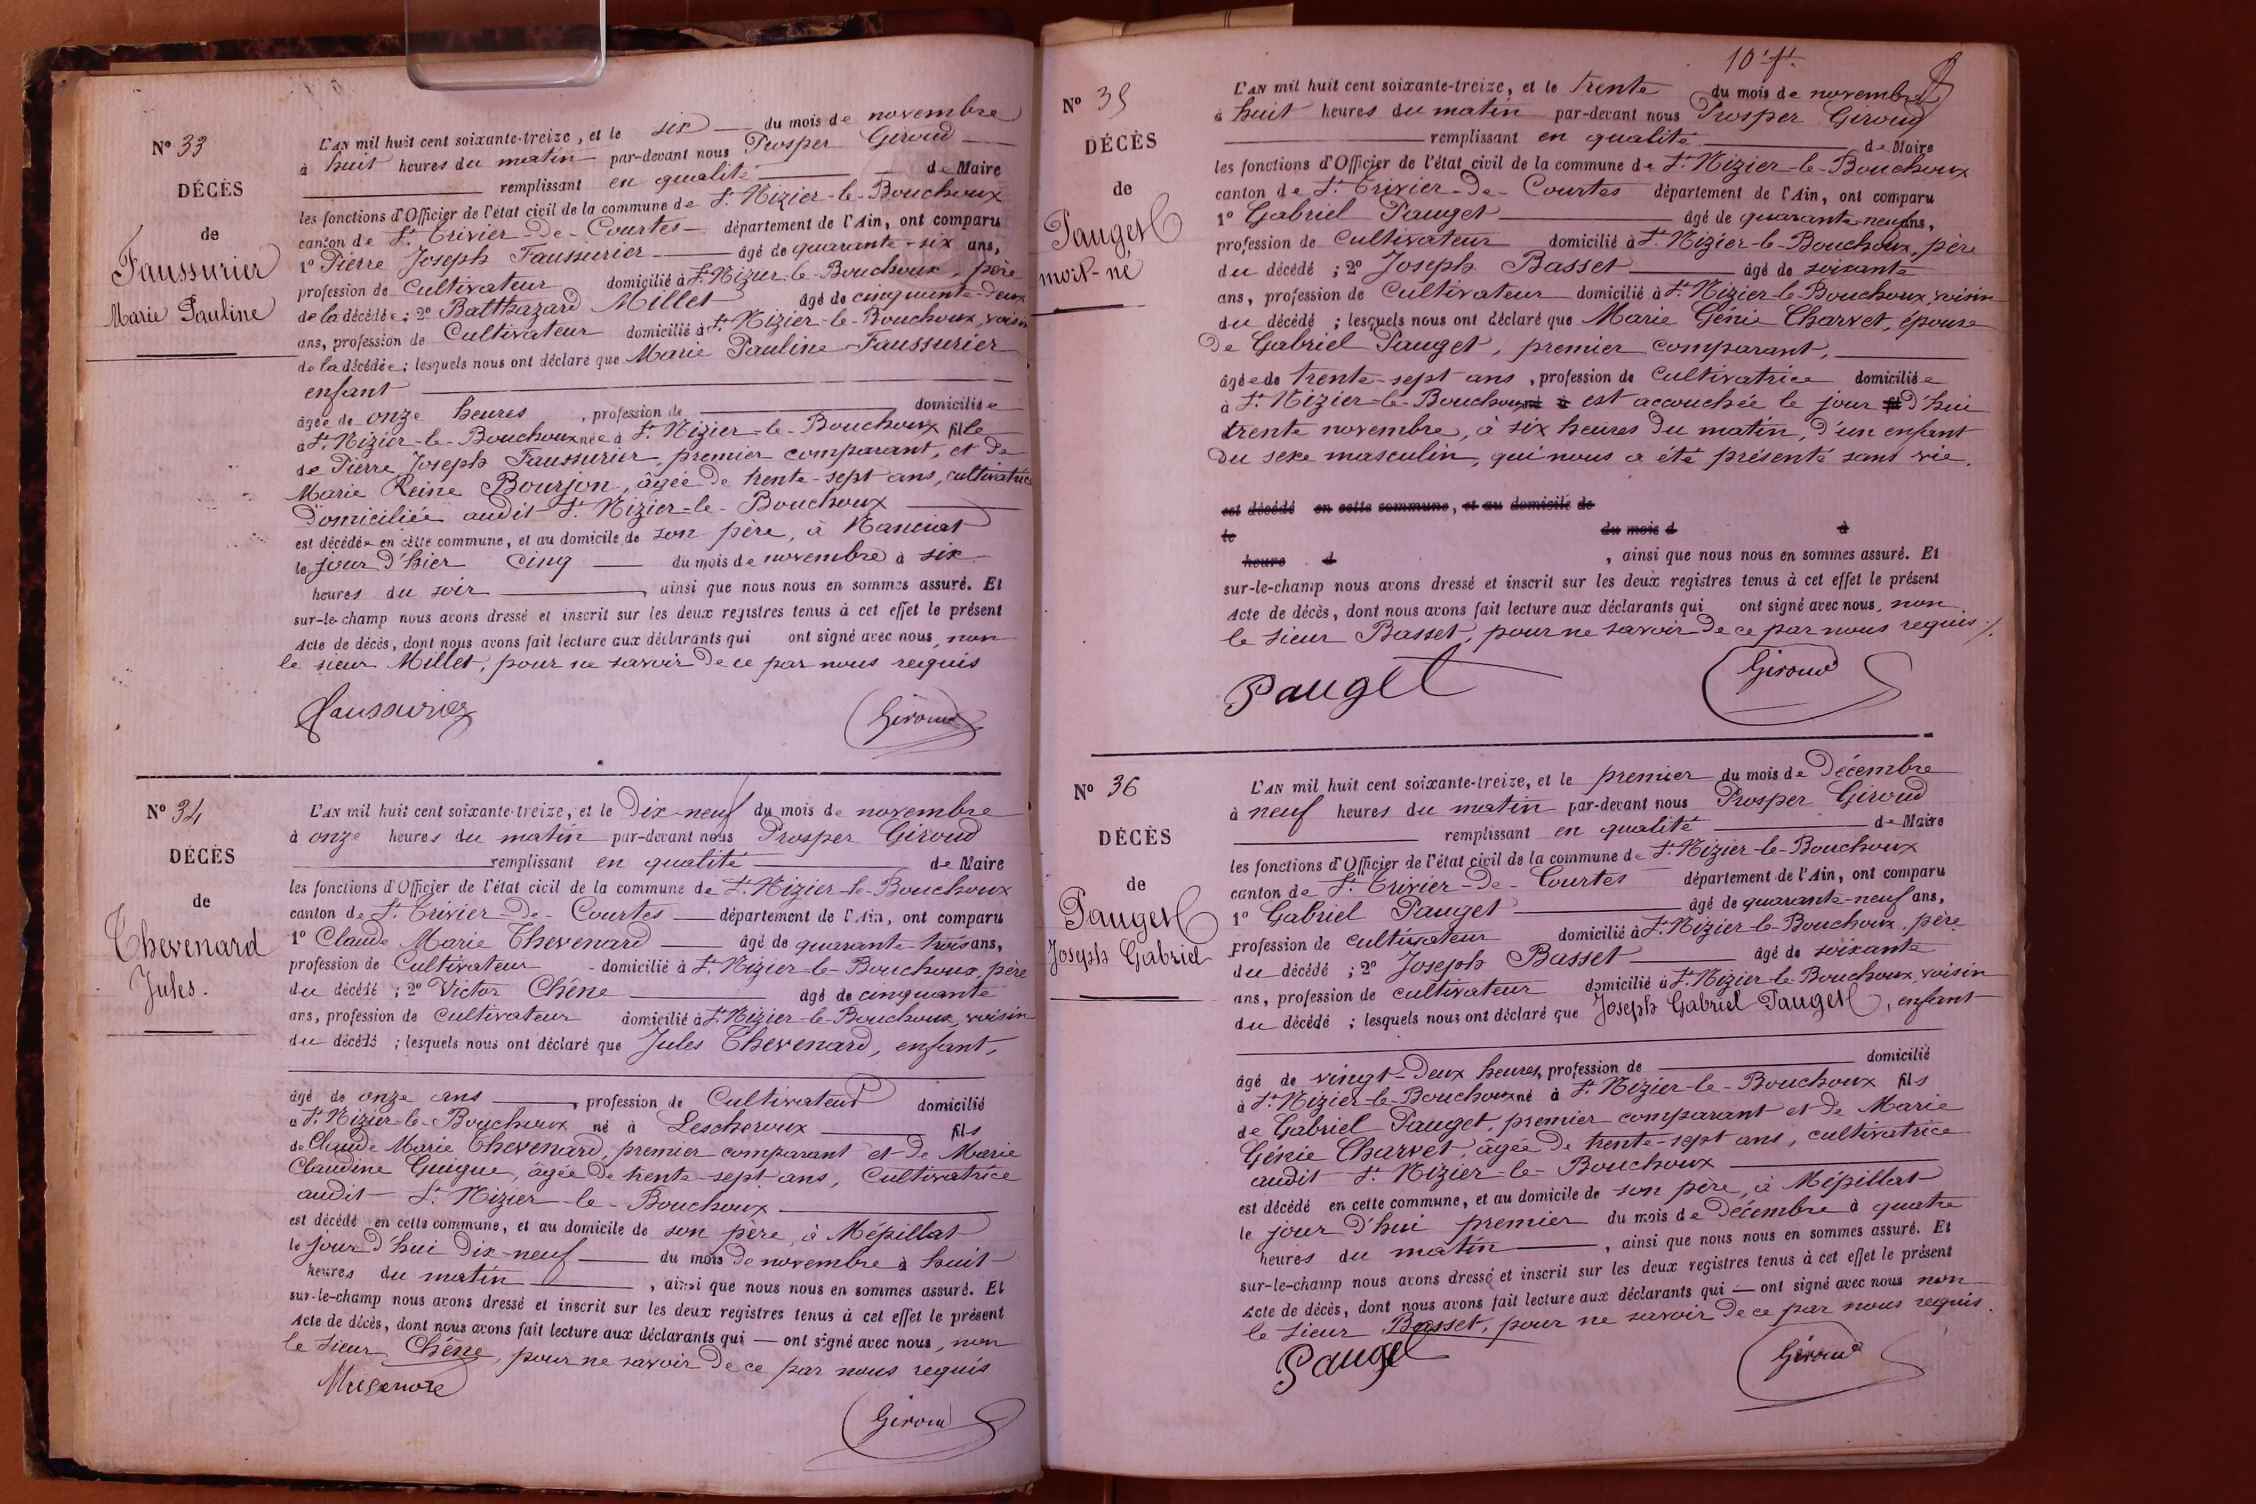 N° 33
DÉCÈS
de
Faussurier
Marie Pauline
L'AN mil huit cent soixante-treize, et le six du mois de novembre
à huit heures du matin par-devant nous Prosper Giroud
remplissant en qualité de Maire
les fonctions d'Officier de l'état civil de la commune de St Nizier-le-Bouchoux
canton de St Trivier-de-Courtes département de l'Ain, ont comparu
1° Pierre Joseph Faussurier âgé de quarante-six ans,
profession de Cultivateur domicilié à St Nizier-le-Bouchoux, père
de la décédée ; 2° Balthazard Millet âgé de cinquante-deux
ans, profession de Cultivateur domicilié à St Nizier-le-Bouchoux, voisin
de la décédée ; lesquels nous ont déclaré que Marie Pauline Faussurier
enfant
âgée de onze heures, profession de domiciliée
à St Nizier-le-Bouchoux née à St Nizier-le-Bouchoux fille
de Pierre Joseph Faussurier, premier comparant, et de
Marie Reine Bourjon, âgée de trente-sept ans, cultivatrice
domiciliée audit St Nizier-le-Bouchoux
est décédée en cette commune, et au domicile de son père, à Manciat
le jour d'hier cinq du mois de novembre à six
heures du soir, ainsi que nous nous en sommes assuré. Et
sur-le-champ nous avons dressé et inscrit sur les deux registres tenus à cet effet le présent
Acte de décès, dont nous avons fait lecture aux déclarants qui ont signé avec nous, non
le sieur Millet, pour ne savoir de ce par nous requis
Faussurier Giroud
N° 34
DÉCÈS
de
Thevenard
Jules.
L'AN mil huit cent soixante-treize, et le dix-neuf du mois de novembre
à onze heures du matin par-devant nous Prosper Giroud
remplissant en qualité de Maire
les fonctions d'Officier de l'état civil de la commune de St Nizier-le-Bouchoux
canton de St Trivier-de-Courtes département de l'Ain, ont comparu
1° Claude Marie Thevenard âgé de quarante-trois ans,
profession de Cultivateur domicilié à St Nizier-le-Bouchoux, père
du décédé ; 2° Victor Chêne âgé de cinquante
ans, profession de Cultivateur domicilié à St Nizier-le-Bouchoux, voisin
du décédé ; lesquels nous ont déclaré que Jules Thevenard, enfant,
âgé de onze ans, profession de Cultivateur domicilié
à St Nizier-le-Bouchoux né à Lescheroux fils
de Claude Marie Thevenard, premier comparant et de Marie
Claudine Guigue, âgée de trente-sept ans, Cultivatrice
audit St Nizier-le-Bouchoux
est décédé en cette commune, et au domicile de son père, à Mépillat
le jour d'hui dix-neuf du mois de novembre à huit
heures du matin, ainsi que nous nous en sommes assuré. Et
sur-le-champ nous avons dressé et inscrit sur les deux registres tenus à cet effet le présent
Acte de décès, dont nous avons fait lecture aux déclarants qui — ont signé avec nous, non
le sieur Chêne, pour ne savoir de ce par nous requis
Giroud
10e ft.
N° 35
DÉCÈS
de
Pauget
mort-né
L'AN mil huit cent soixante-treize, et le trente du mois de novembre
à huit heures du matin par-devant nous Prosper Giroud
remplissant en qualité de Maire
les fonctions d'Officier de l'état civil de la commune de St Nizier-le-Bouchoux
canton de St Trivier-de-Courtes département de l'Ain, ont comparu
1° Gabriel Pauget âgé de quarante-neuf ans,
profession de Cultivateur domicilié à St Nizier-le-Bouchoux, père
du décédé ; 2° Joseph Basset âgé de soixante
ans, profession de Cultivateur domicilié à St Nizier-le-Bouchoux, voisin
du décédé ; lesquels nous ont déclaré que Marie Génie Charvet, épouse
de Gabriel Pauget, premier comparant,
âgée de trente-sept ans, profession de Cultivatrice domiciliée
à St Nizier-le-Bouchoux né à est accouchée le jour fil d'hui
trente novembre, à six heures du matin, d'un enfant
du sexe masculin, qui nous a été présenté sans vie.
est décédé en cette commune, et au domicile de
le du mois d à
heure d, ainsi que nous nous en sommes assuré. Et
sur-le-champ nous avons dressé et inscrit sur les deux registres tenus à cet effet le présent
Acte de décès, dont nous avons fait lecture aux déclarants qui ont signé avec nous, non
le sieur Basset, pour ne savoir de ce par nous requis ./.
Pauget Giroud
N° 36
DÉCÈS
de
Pauget
Joseph Gabriel
L'AN mil huit cent soixante-treize, et le premier du mois de Décembre
à neuf heures du matin par-devant nous Prosper Giroud
remplissant en qualité de Maire
les fonctions d'Officier de l'état civil de la commune de St Nizier-le-Bouchoux
canton de St Trivier-de-Courtes département de l'Ain, ont comparu
1° Gabriel Pauget âgé de quarante-neuf ans,
profession de cultivateur domicilié à St Nizier-le-Bouchoux, père
du décédé ; 2° Joseph Basset âgé de soixante
ans, profession de cultivateur domicilié à St Nizier-le-Bouchoux, voisin
du décédé ; lesquels nous ont déclaré que Joseph Gabriel Pauget, enfant
âgé de vingt-deux heures, profession de domicilié
à St Nizier-le-Bouchoux né à St Nizier-le-Bouchoux fils
de Gabriel Pauget, premier comparant et de Marie
Génie Charvet, âgée de trente-sept ans, cultivatrice
audit St Nizier-le-Bouchoux
est décédé en cette commune, et au domicile de son père, à Mépillat
le jour d'hui premier du mois de décembre à quatre
heures du matin, ainsi que nous nous en sommes assuré. Et
sur-le-champ nous avons dressé et inscrit sur les deux registres tenus à cet effet le présent
Acte de décès, dont nous avons fait lecture aux déclarants qui — ont signé avec nous non
le sieur Basset, pour ne savoir de ce par nous requis.
Pauget Giroud